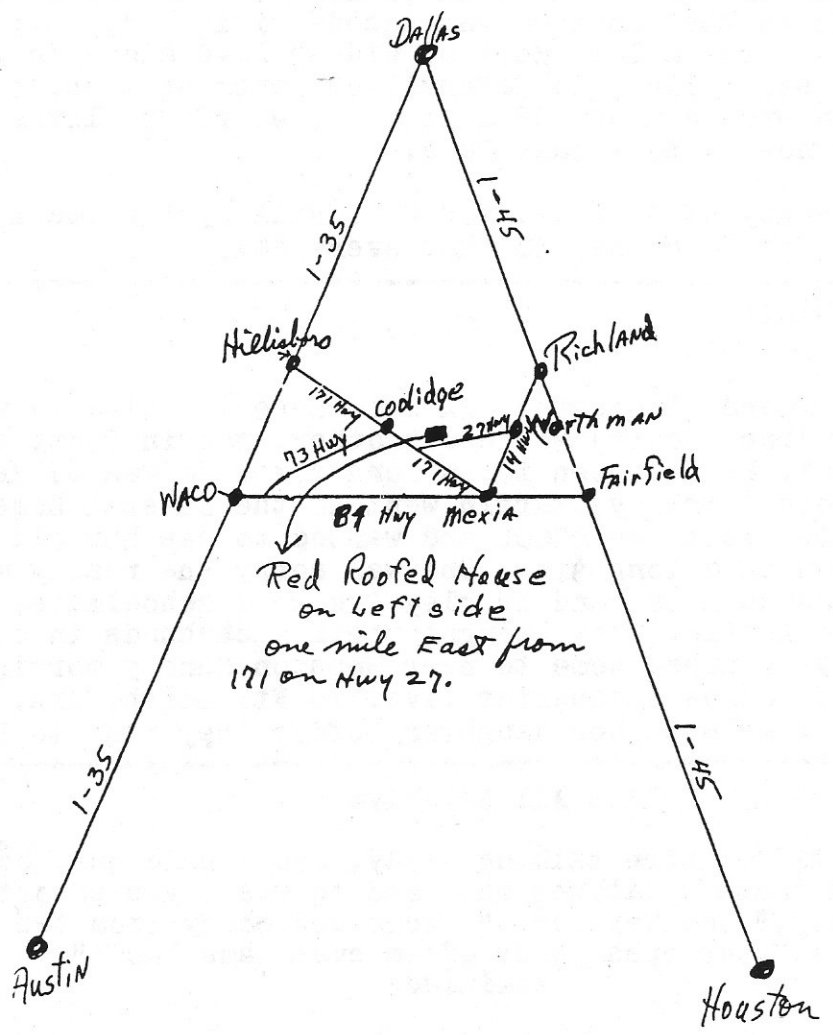 DALLAS
I-35
I-45
Hillisboro
Richland
171 Hwy
Coolidge
73 Hwy
27 Hwy
Worthman
171 Hwy
14 Hwy
WACO
84 Hwy
Mexia
Fairfield
Red Roofed House
on Left side
one mile East from
171 on Hwy 27.
I-35
I-45
Austin
Houston